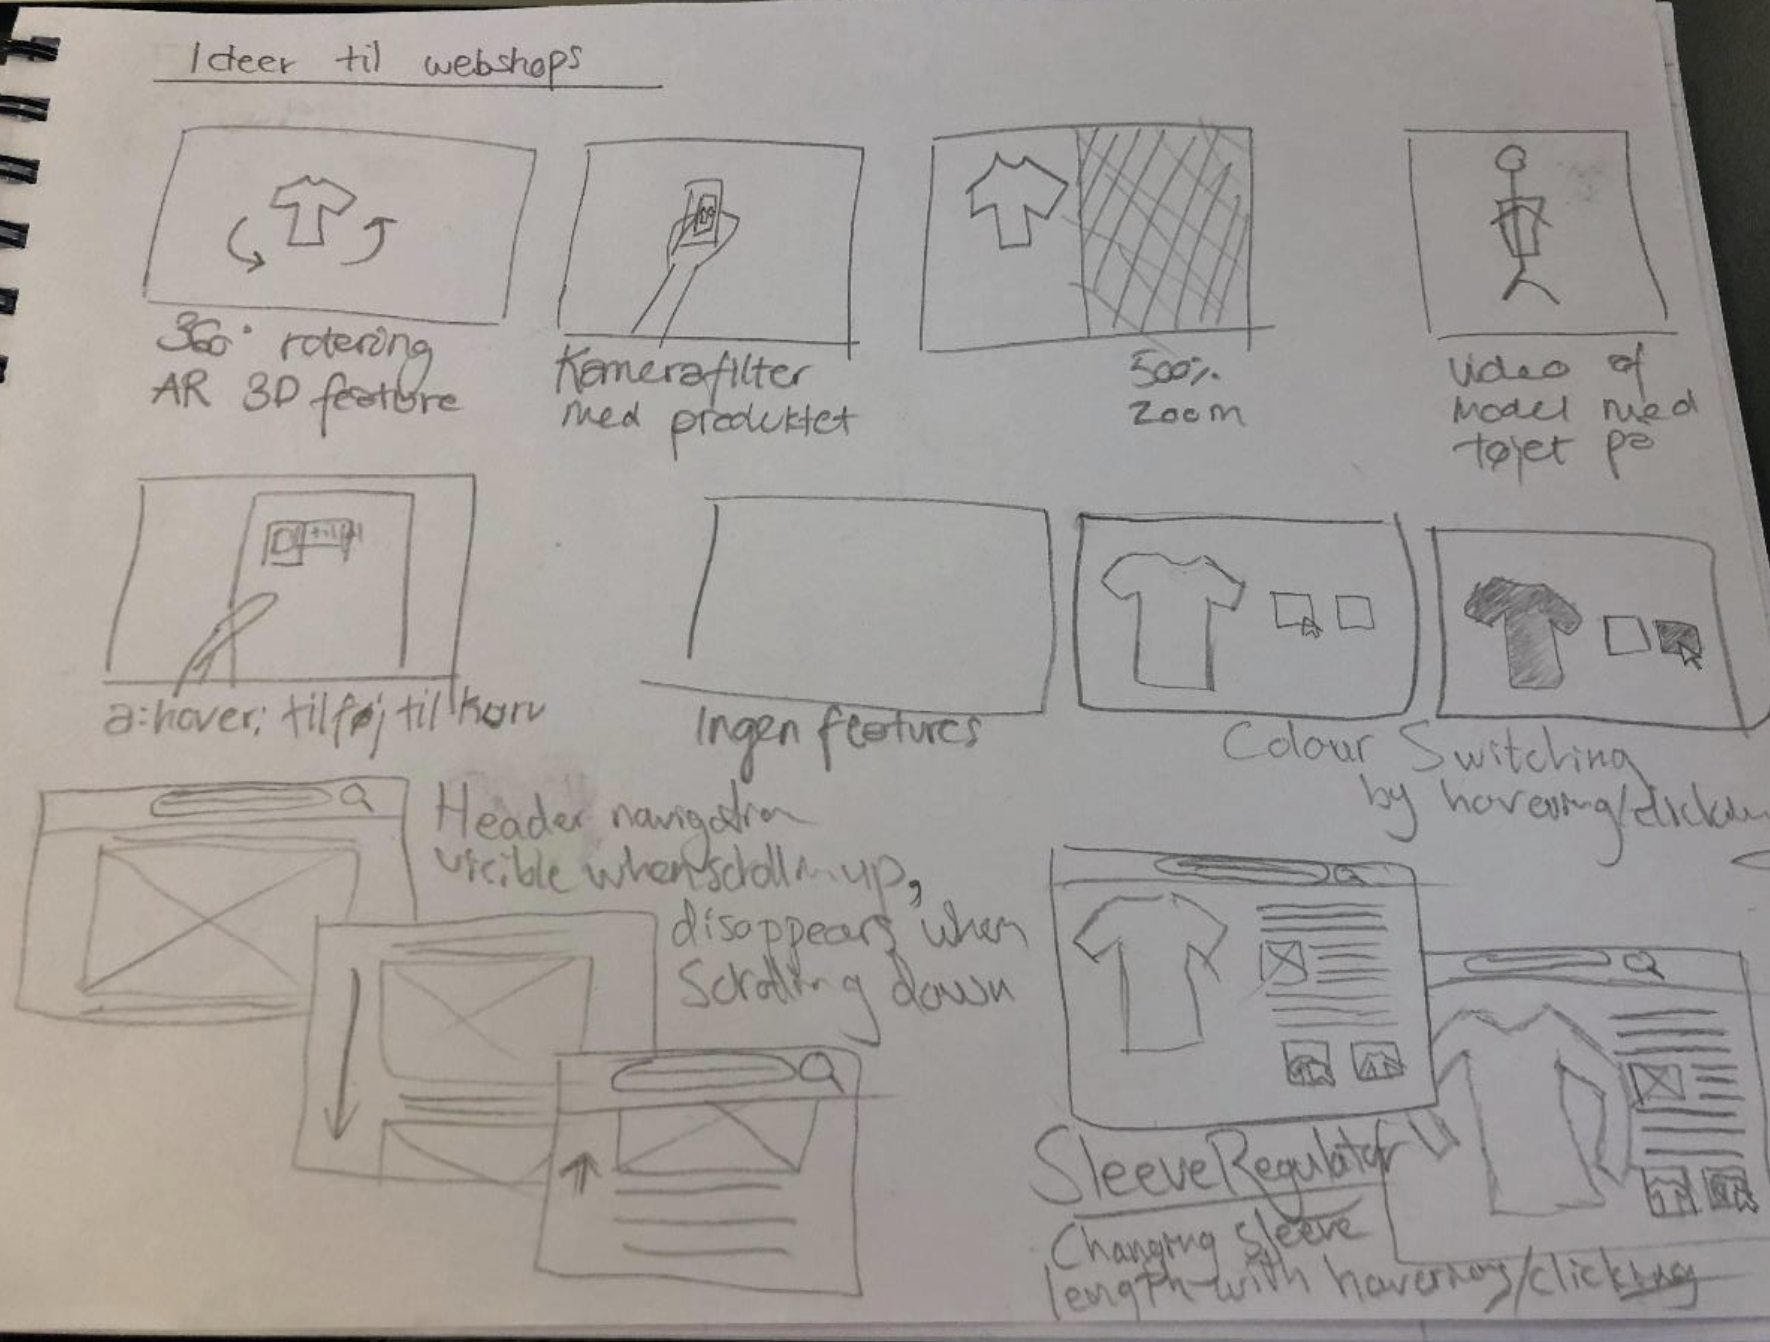 Ideer til webshops
360° rotering
AR 3D feature
Kamerafilter
med produktet
500%
zoom
Video af
model med
tøjet på
a:hover; tilføj til kurv
Ingen features
Colour Switching
by hovering/clicking
Header navigation
visible when scrollin up,
disappears when
scrolling down
Sleeve Regulator
Changing sleeve
length with hovering/clicking